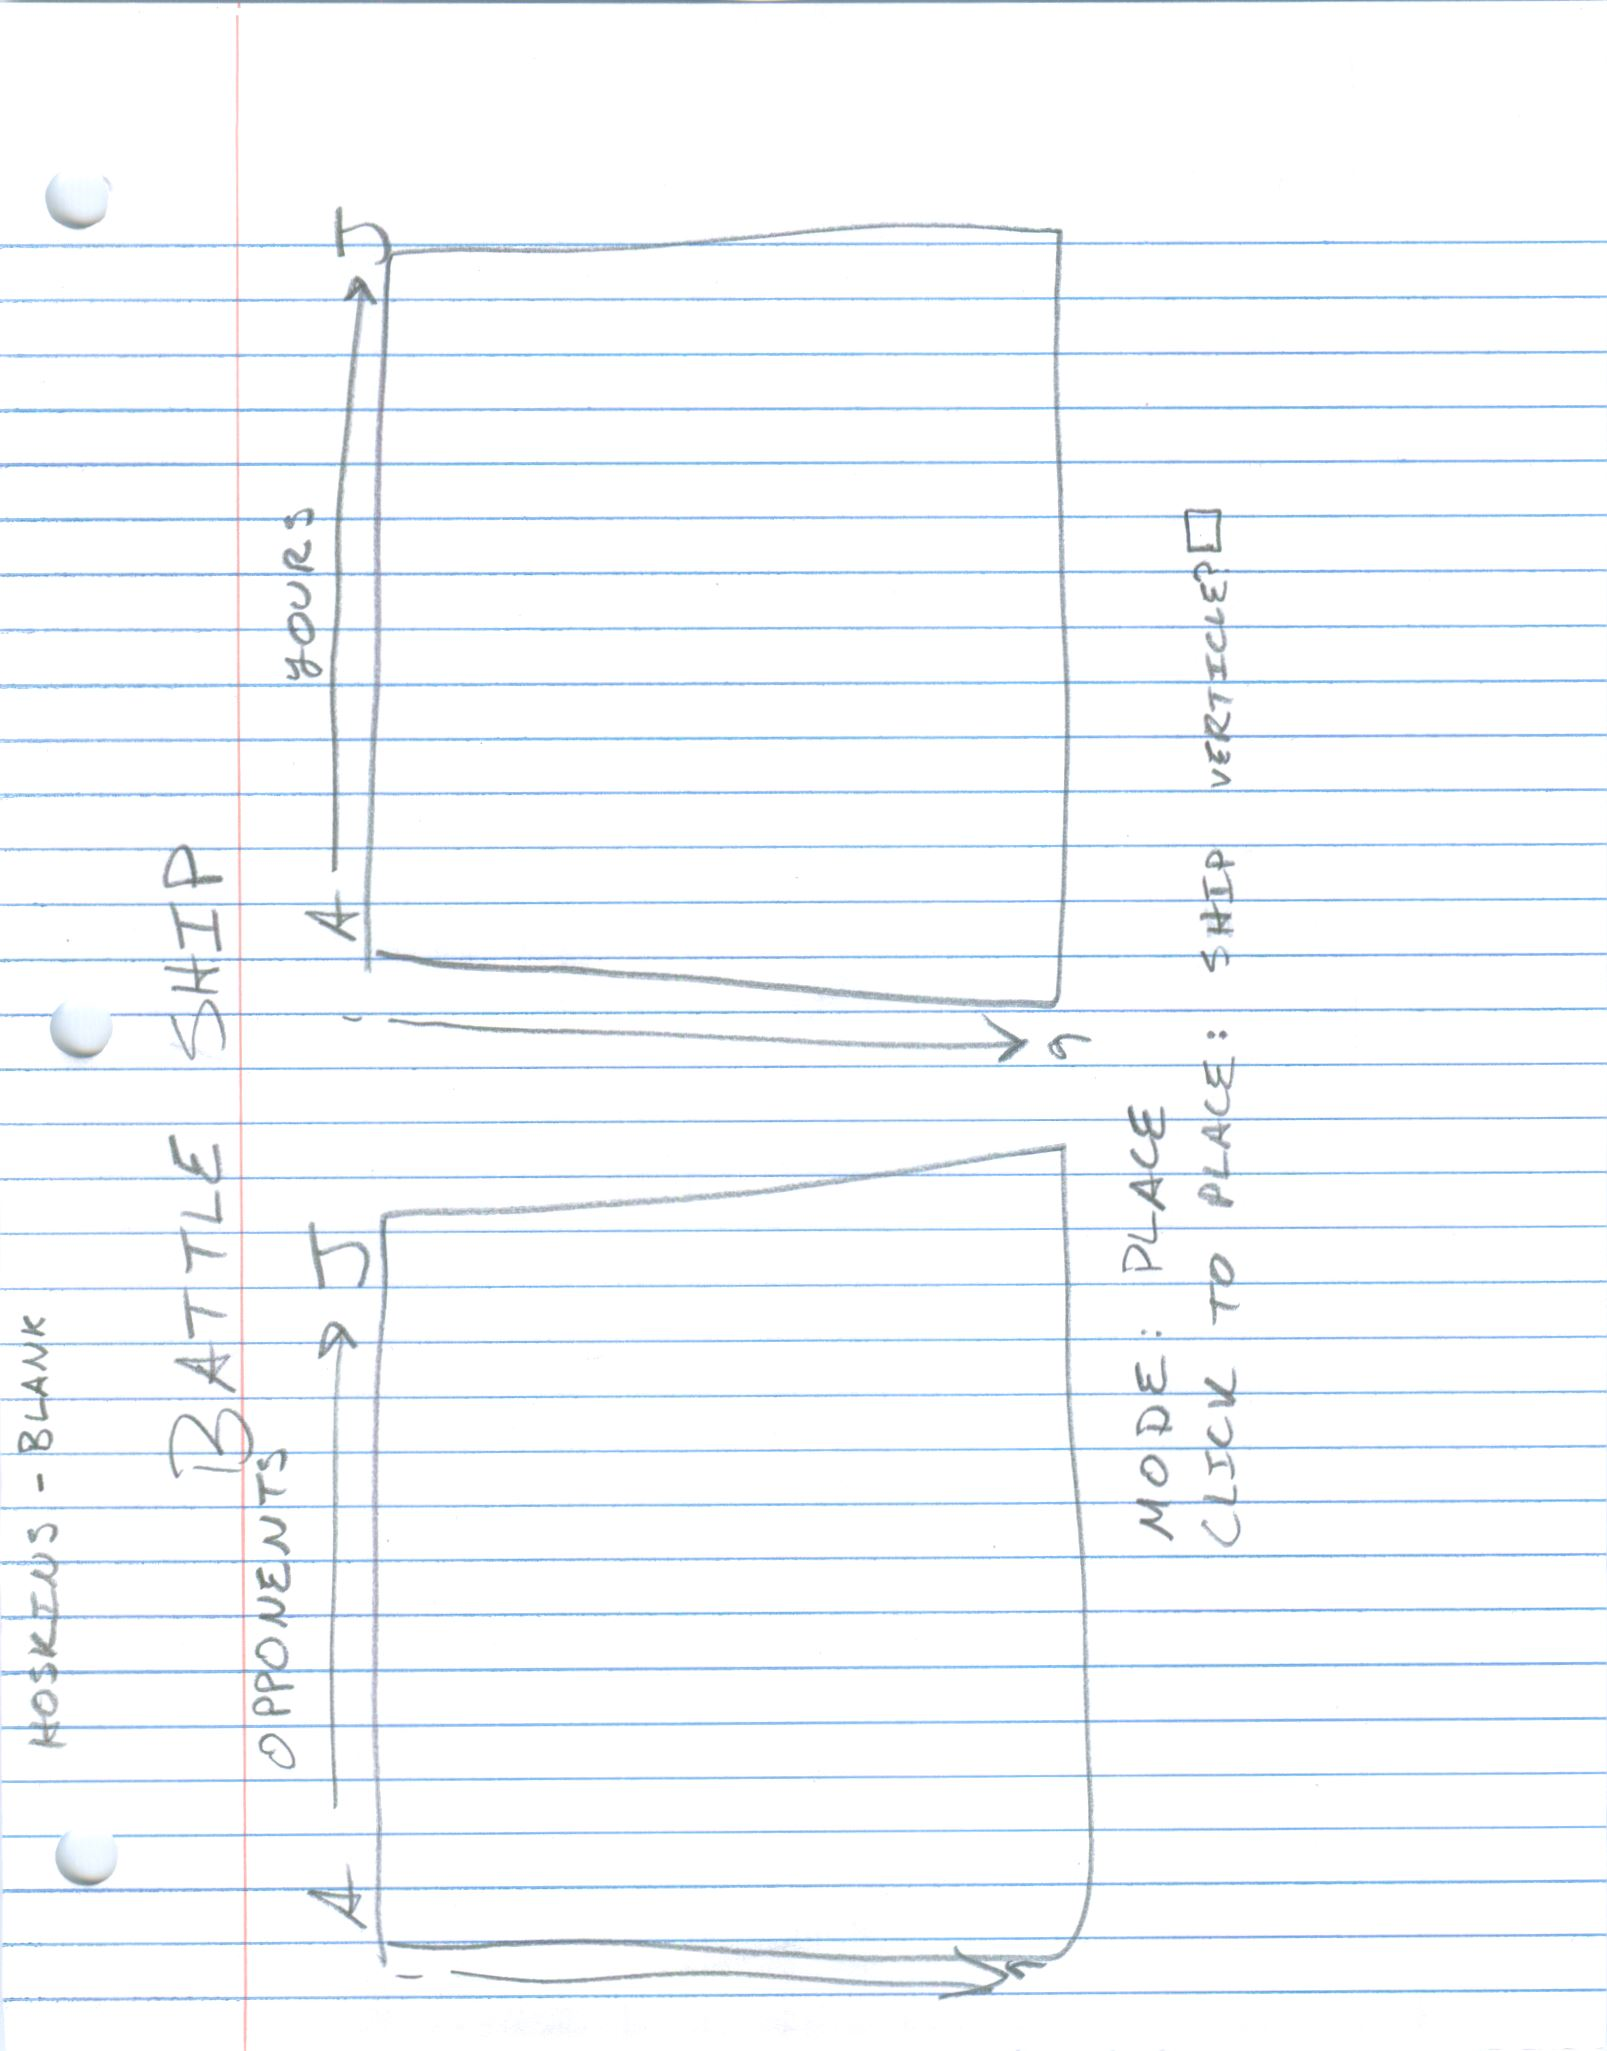 HOSKINS - BLANK
BATTLE SHIP
OPPONENTS YOURS
A J A J
1 1
9 9
MODE: PLACE
CLICK TO PLACE: SHIP VERTICLE?